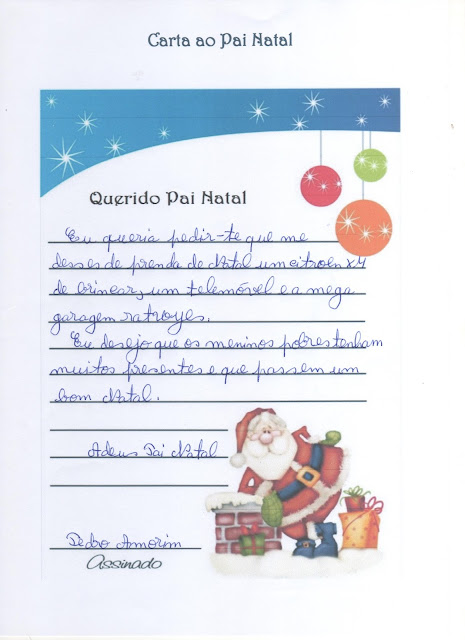 Carta ao Pai Natal
Querido Pai Natal
Eu queria pedir-te que me
desses de prenda de Natal um citroen x4
de brincar, um telemóvel e a mega
garagem ratroyes.
Eu desejo que os meninos pobres tenham
muitos presentes e que passem um
bom Natal.
Adeus Pai Natal
Pedro Amorim
Assinado